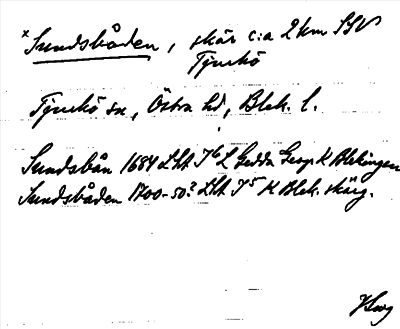 *Sundsbåden, skär c:a 2 km SSV
Tjurkö
Tjurkö sn, Östra hd, Blek. l.
Sundsbån 1684 Lht I 6 L Gedda Geogr K Blekingen
Sundsbåden 1700-50? Lht I 5 K Blek. skärg.